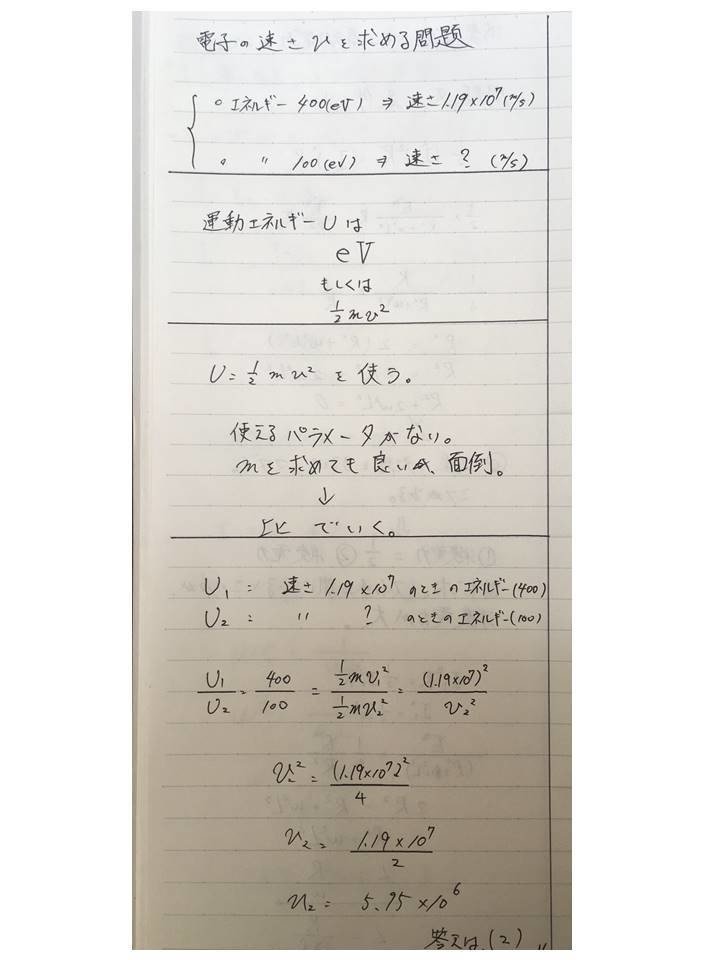 電子の速さ v を求める問題
○ エネルギー 400(eV) ⇒ 速さ 1.19×10⁷(m/s)
。 〃 100(eV) ⇒ 速さ ? (m/s)
運動エネルギー U は
eV
もしくは
1/2 mv²
U = 1/2 mv² を使う。
使えるパラメータがない。
mを求めても良いが、面倒。
↓
比でいく。
U₁ = 速さ 1.19×10⁷ のときのエネルギー(400)
U₂ = 〃 ? のときのエネルギー(100)
U₁/U₂ = 400/100 = (1/2 mv₁²)/(1/2 mv₂²) = (1.19×10⁷)²/v₂²
v₂² = (1.19×10⁷)²/4
v₂ = 1.19×10⁷/2
v₂ = 5.95×10⁶
答えは、(2) 〃